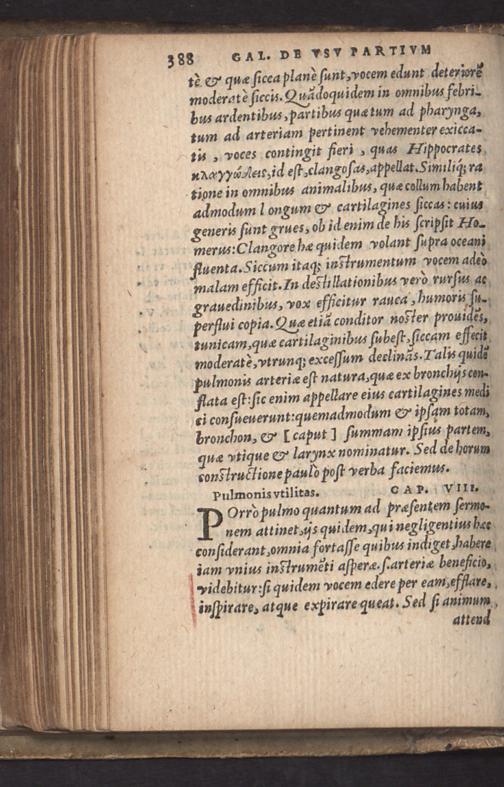 388 GAL. DE VSV PARTIVM
tè & quæ sicca planè sunt, vocem edunt deteriorẽ
moderatè siccis. Quãdoquidem in omnibus febri-
bus ardentibus, partibus quætum ad pharynga,
tum ad arteriam pertinent vehementer exicca-
tis, voces contingit fieri, quas Hippocrates
κλαγγώδεις, id est, clangosas, appellat. Similiq; ra
tione in omnibus animalibus, quæ collum habent
admodum longum & cartilagines siccas: cuius
generis sunt grues, ob id enim de his scripsit Ho-
merus: Clangore hæ quidem volant supra oceani
fluenta. Siccum itaq; instrumentum vocem adeò
malam efficit. In destillationibus verò rursus ac
grauedinibus, vox efficitur rauca, humoris su-
perflui copia. Quæ etiã conditor noster prouidẽs,
tunicam, quæ cartilaginibus subest, siccam effecit
moderatè, vtrunq; excessum declinãs. Talis quidẽ
pulmonis arteriæ est natura, quæ ex bronchijs con-
flata est: sic enim appellare eius cartilagines medi
ci consueuerunt: quemadmodum & ipsam totam,
bronchon, & [caput] summam ipsius partem,
quæ vtique & larynx nominatur. Sed de horum
constructione paulò post verba faciemus.
Pulmonis vtilitas. CAP. VIII.
POrrò pulmo quantum ad præsentem sermo-
nem attinet, ijs quidem, qui negligentius hæc
considerant, omnia fortasse quibus indiget, habere
iam vnius instrumẽti asperæ .s. arteriæ beneficio,
videbitur: si quidem vocem edere per eam, efflare,
inspirare, atque expirare queat. Sed si animum
attend